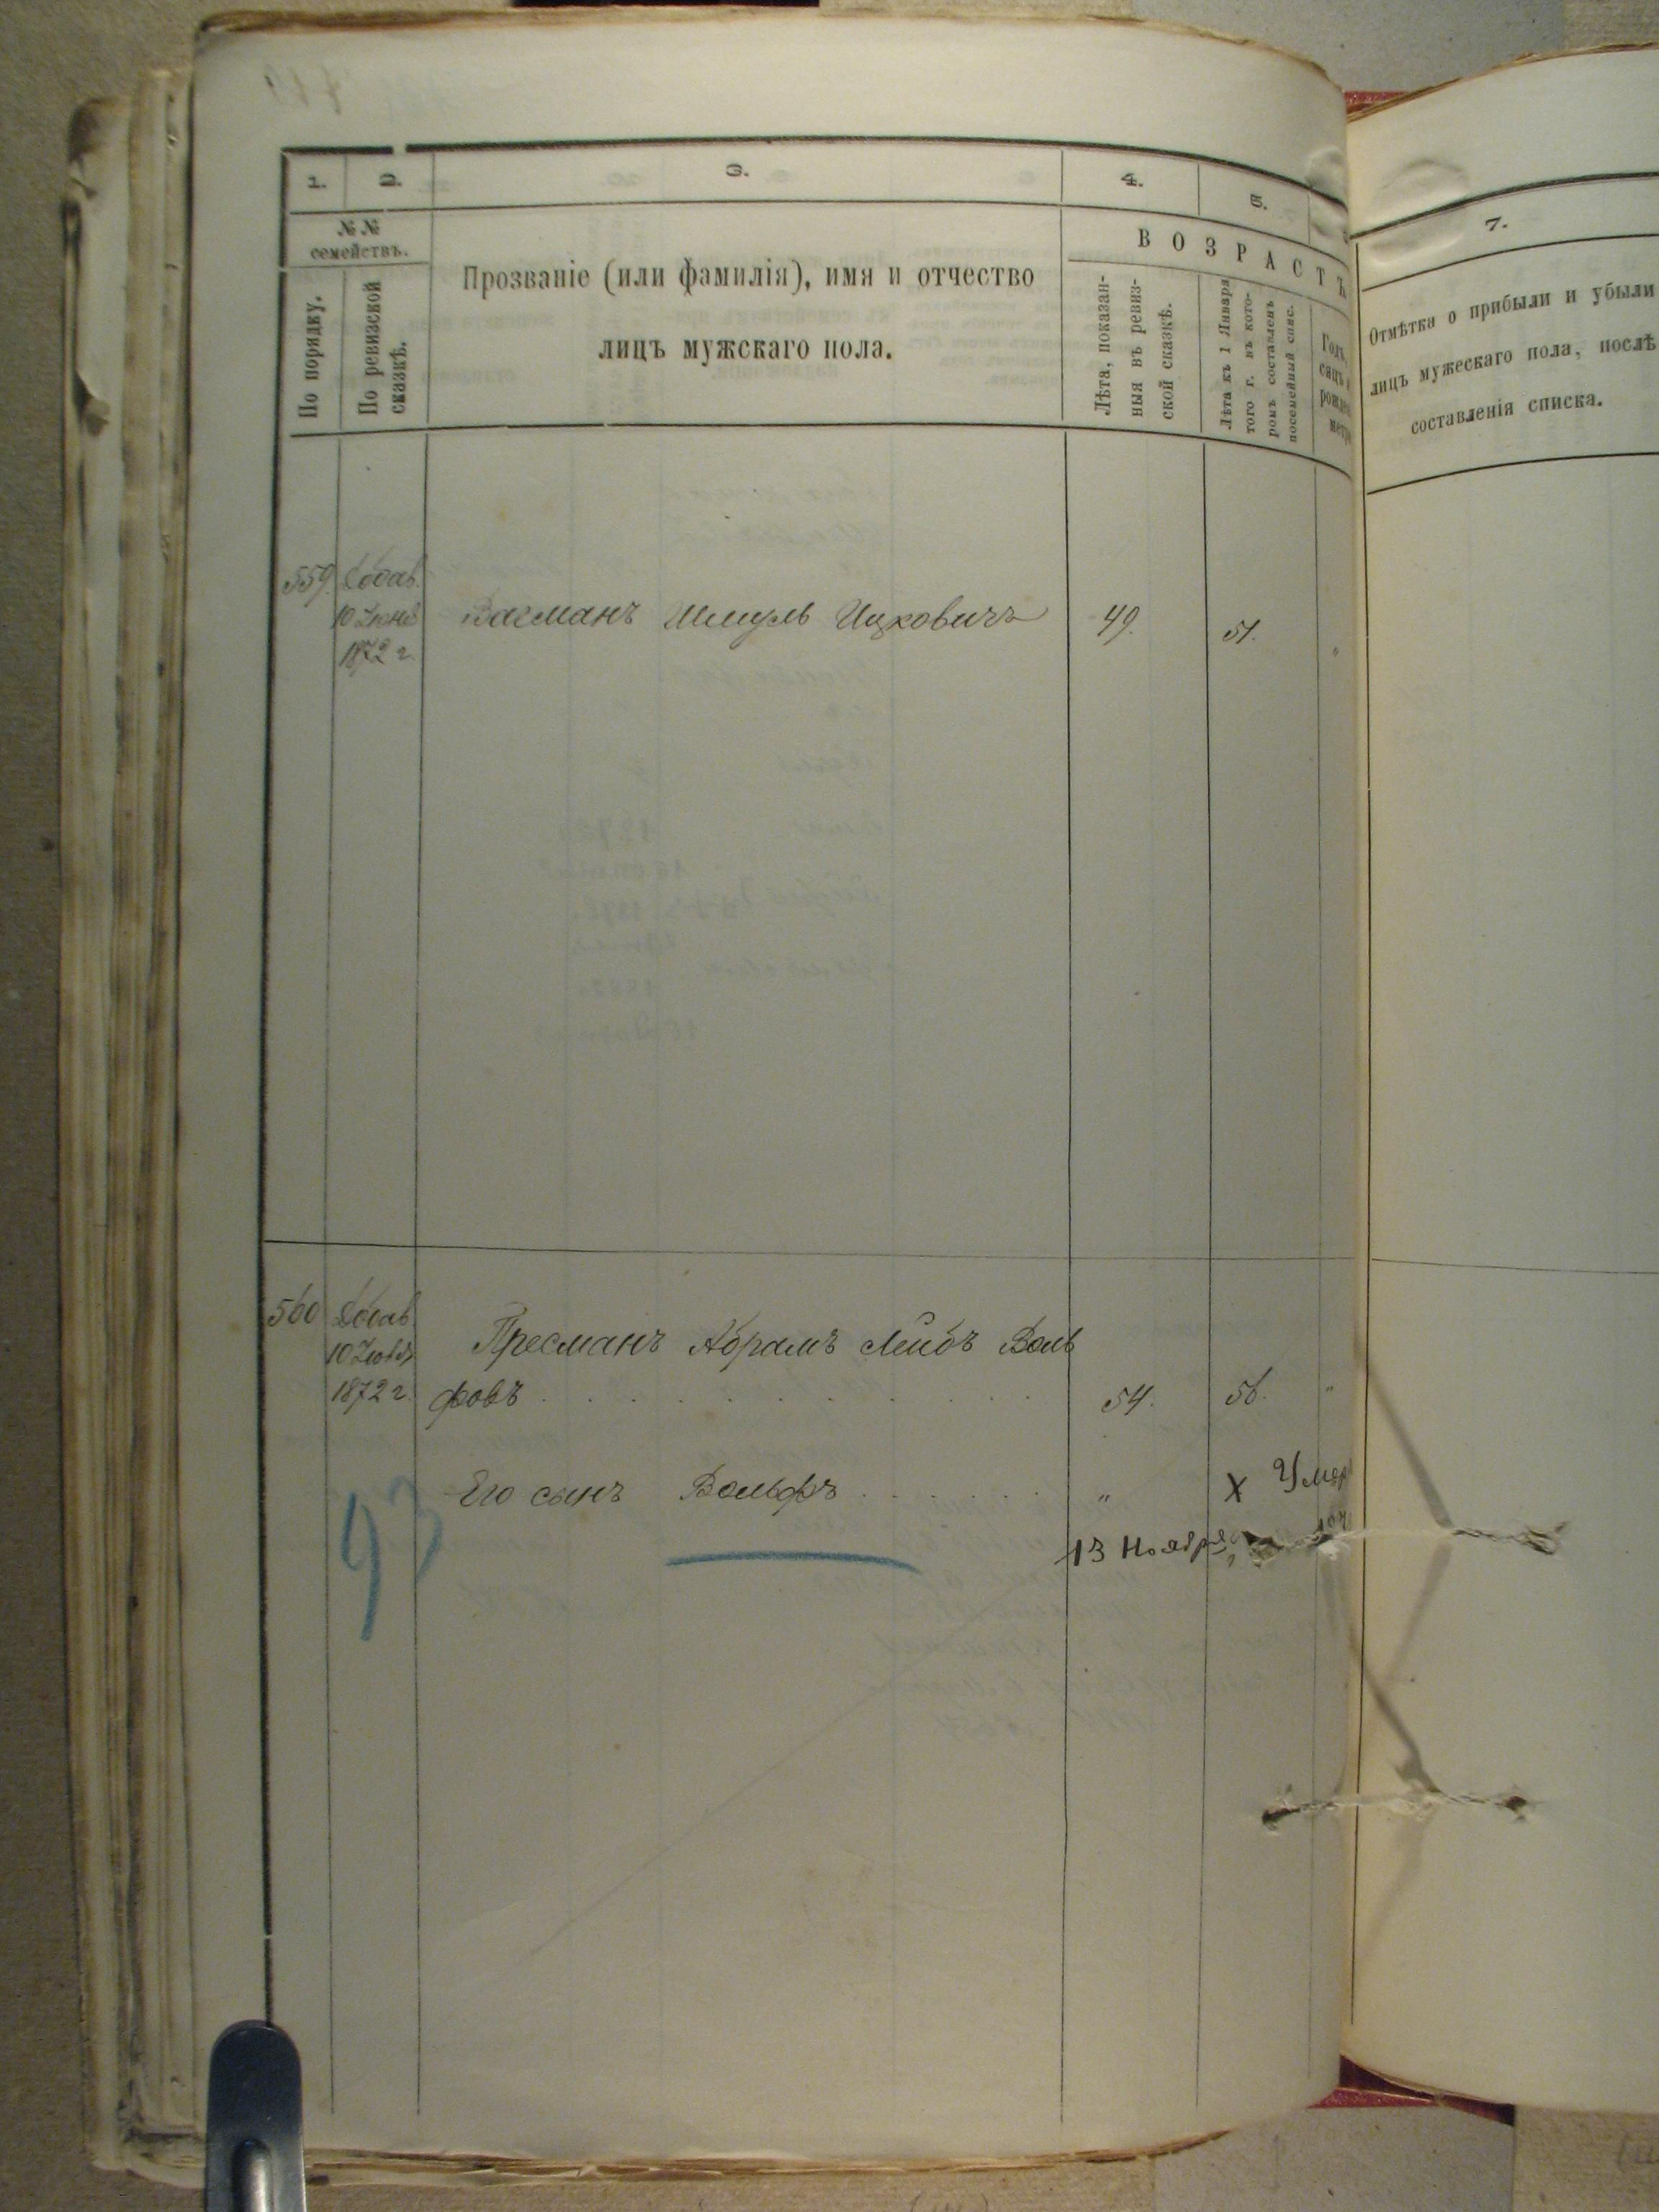 1. 2. 3. 4. 5.
№ № семействъ.
По порядку.
По ревизской сказкѣ.
Прозваніе (или фамилія), имя и отчество
лицъ мужскаго пола.
ВОЗРАСТЪ
Лѣта, показан-
ныя въ ревиз-
ской сказкѣ.
Лѣта къ 1 Января
того г. въ кото-
ромъ составленъ
посемейный спис.
559. Добав.
10 Іюня Вагманъ Шмуль Ицковичъ 49. 51. "
1872 г.
560 Добав.
Пресманъ Абрамъ Лейбъ Воль
1872 г. фовъ 54. 56. "
Его сынъ Вольфъ " X Умер
93
13 Ноября
7.
Отмѣтка о прибыли и убыли
лицъ мужескаго пола, послѣ
составленія списка.